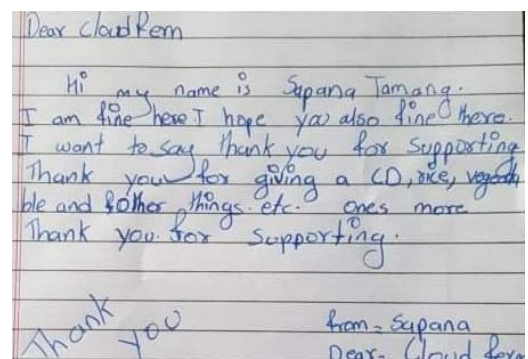 Dear Cloud Rem
Hi my name is Sapana Tamang.
I am fine here I hope you also fine there.
I want to say thank you for supporting
Thank you for giving a CD, rice, vegeta
ble and other things. etc. ones more
Thank you for supporting.
Thank you
from - Sapana
Dear - Cloud Rem